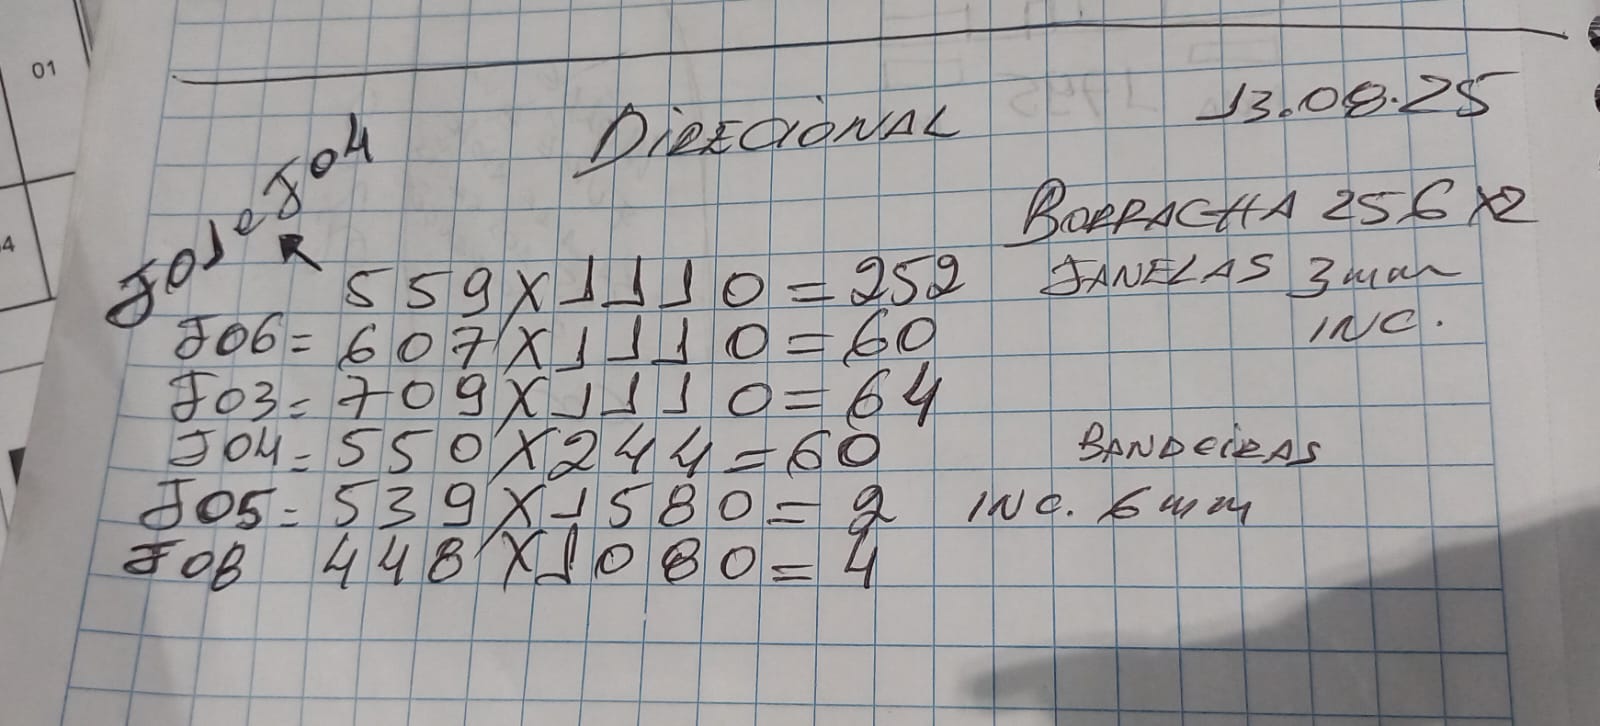 01
4
DIRECIONAL 13.08.25
J01 e J04
BORRACHA 256 x2
R
559 X 1110 = 252 JANELAS 3mm
INC.
J06 = 607 X 1110 = 60
J03 = 709 X 1110 = 64
J04 = 550 X 244 = 60 BANDEIRAS
J05 = 539 X 1580 = 2 INC. 6mm
J08 448 X 1080 = 4